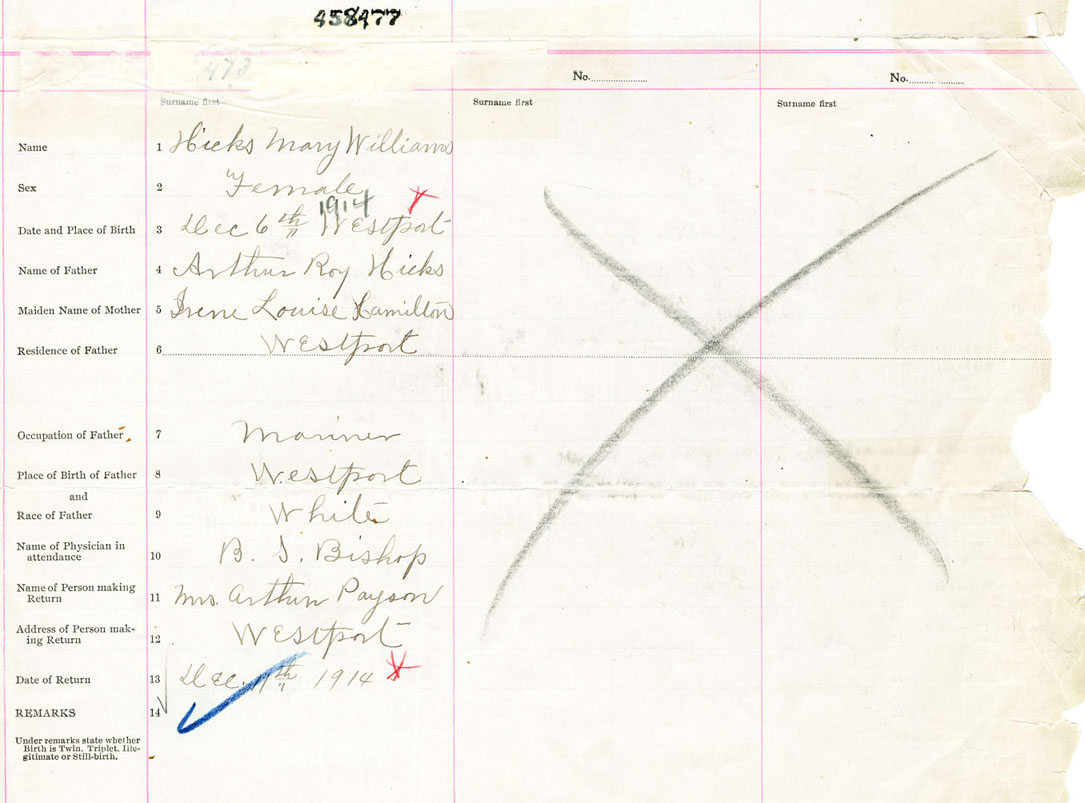 458477
473
No.
No.
Surname first
Surname first
Surname first
Name 1 Hicks Mary Williams
Sex 2 Female
1914
Date and Place of Birth 3 Dec 6th Westport
Name of Father 4 Arthur Roy Hicks
Maiden Name of Mother 5 Irene Louise Hamilton
Residence of Father 6 Westport
Occupation of Father 7 Mariner
Place of Birth of Father 8 Westport
and
Race of Father 9 White
Name of Physician in
attendance 10 B. S. Bishop
Name of Person making
Return 11 Mrs. Arthur Payson
Address of Person mak-
ing Return 12 Westport
Date of Return 13 Dec. 1914
REMARKS 14
Under remarks state whether
Birth is Twin, Triplet, Ille-
gitimate or Still-birth.